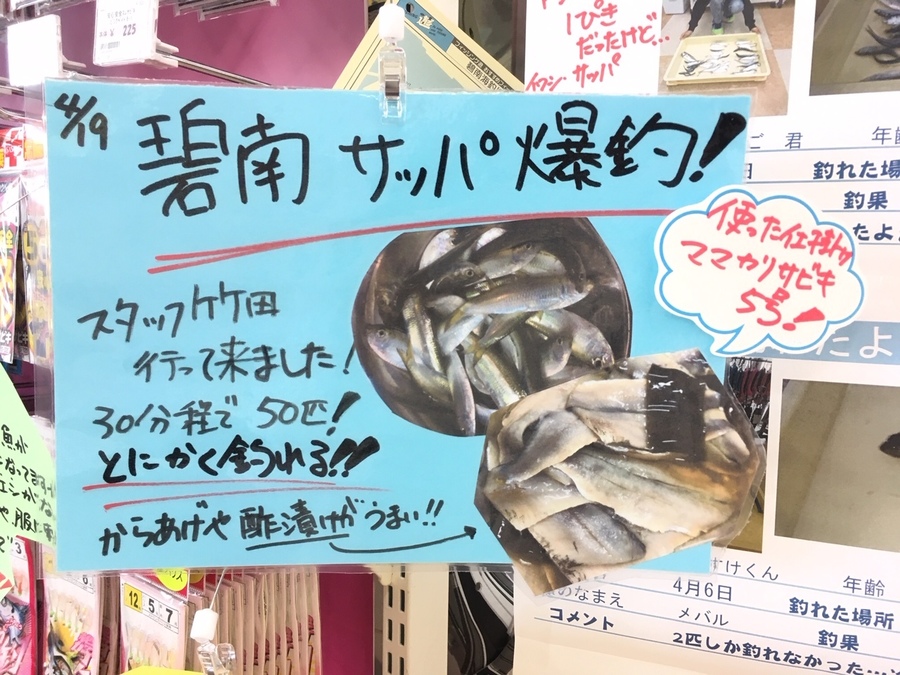 225
1ぴき
だったけど…
イワシ・サッパ
4/19
碧南 サッパ 爆釣!
使った仕掛け
ママカリサビキ
5号!
スタッフ竹田
行って来ました!
30分程で 50匹!
とにかく釣れる!!
からあげや 酢漬けがうまい!!
君 年齢
釣れた場
釣果
たよ
魚が
けくん 年齢
のなまえ 4月6日 釣れた場所
コメント メバル 釣果
2匹しか釣れなかった…
12 5 7